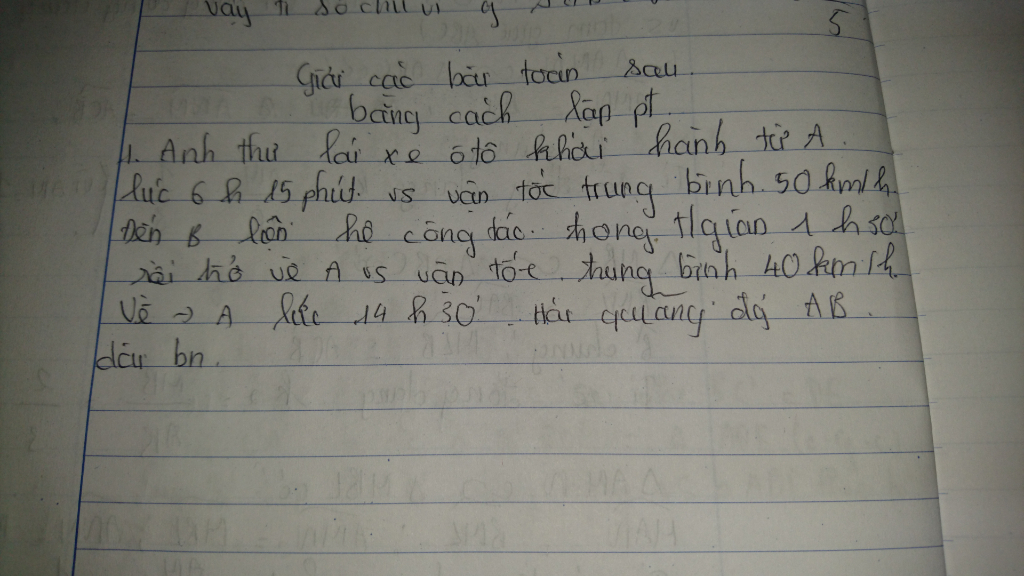 vậy tỉ số chu vi
5
Giải các bài toán sau
bằng cách lập pt
1. Anh thư lái xe ôtô khởi hành từ A.
lúc 6 h 15 phút. vs vận tốc trung bình. 50 km/h.
Đến B liên hệ công tác. trong t/gian 1 h 50'
rồi trở về A vs vận tốc. trung bình 40 km/h.
Về → A lúc 14 h 30'. Hỏi quãng đg AB.
dài bn.